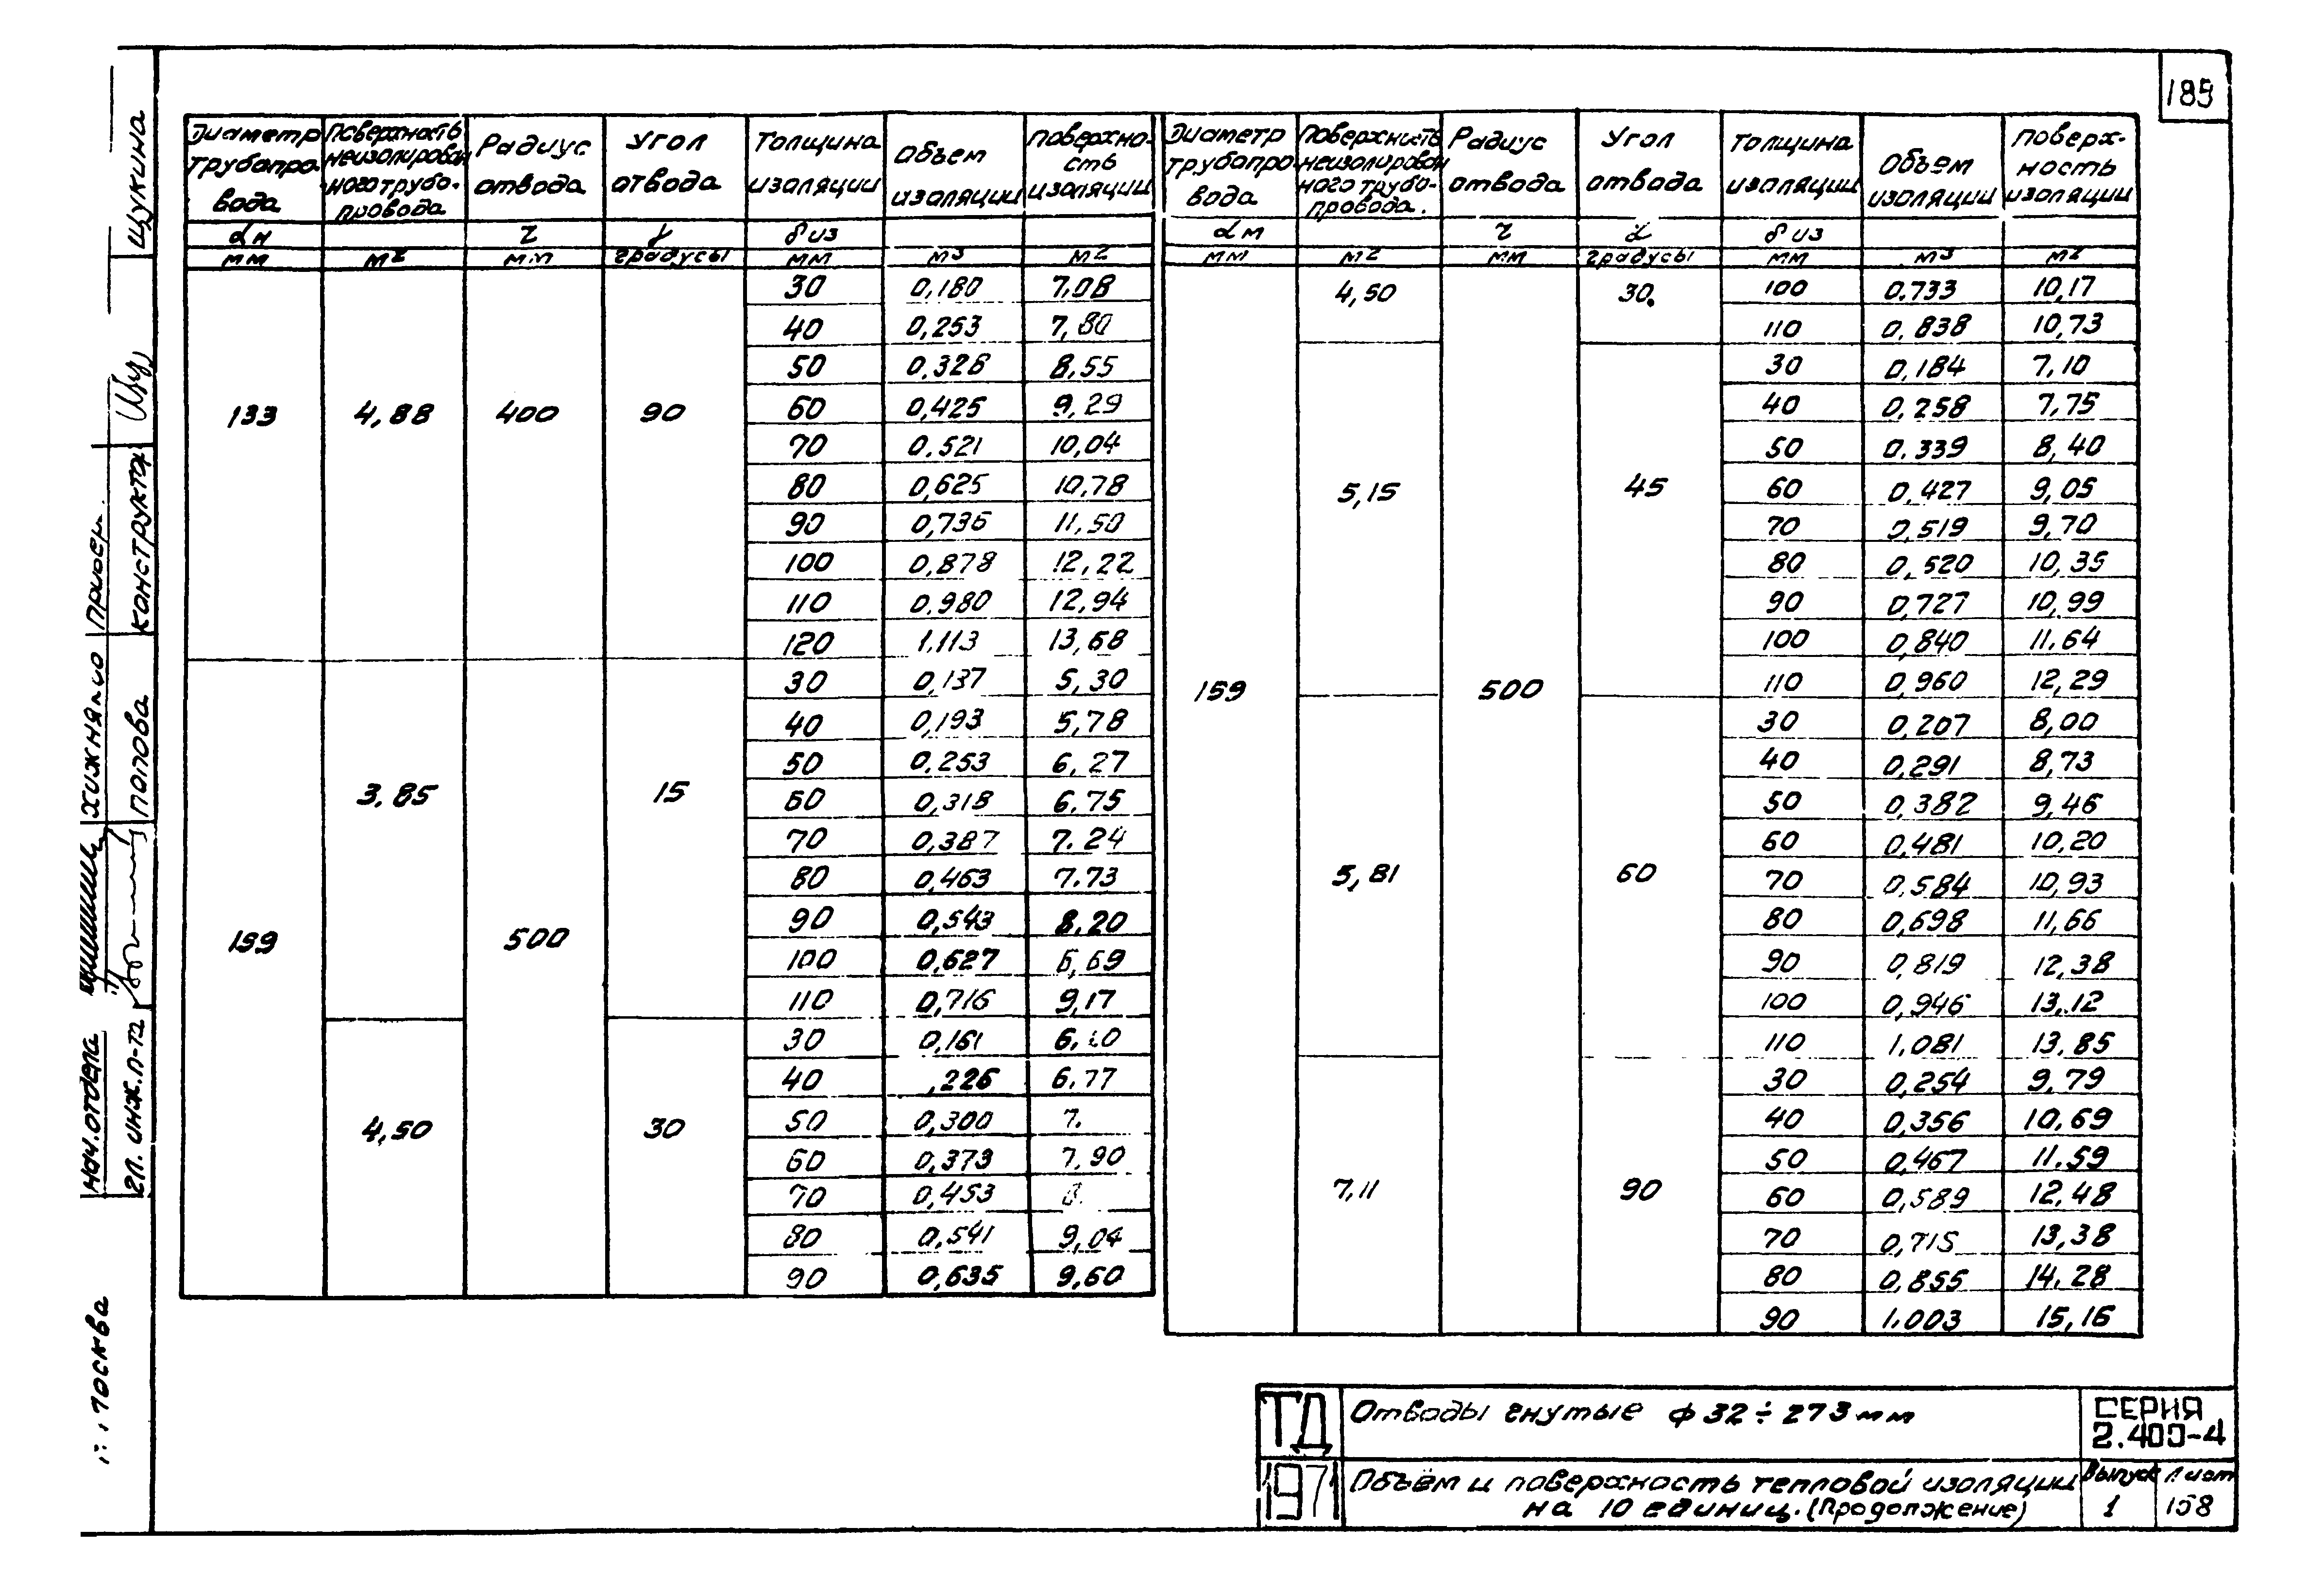 189
Диаметр трубопровода Поверхность неизолированного трубопровода Радиус отвода Угол отвода Толщина изоляции Объем изоляции Поверхность изоляции
dн r γ δиз
мм м² мм градусы мм м³ м²
133 4,88 400 90
30 0,180 7,08
40 0,253 7,80
50 0,328 8,55
60 0,425 9,29
70 0.521 10,04
80 0,625 10,78
90 0,736 11,50
100 0,878 12,22
110 0,980 12,94
120 1.113 13,68
159 500
3,85 15
30 0,137 5,30
40 0,193 5,78
50 0,253 6,27
60 0,318 6,75
70 0,387 7.24
80 0,463 7.73
90 0,543 8.20
100 0,627 8,69
110 0,716 9,17
4,50 30
30 0,161 6,
40 ,226 6.77
50 0,300 7.
60 0,373 7,90
70 0,453 8.
80 0,541 9,04
90 0,635 9,60
Диаметр трубопровода Поверхность неизолированного трубопровода. Радиус отвода Угол отвода Толщина изоляции Объем изоляции Поверхность изоляции
dм r γ δиз
мм м² мм градусы мм м³ м²
159 500
4,50 30
100 0.733 10,17
110 0,838 10,73
5,15 45
30 0,184 7,10
40 0,258 7,75
50 0.339 8,40
60 0,427 9,05
70 0,519 9,70
80 0,520 10,35
90 0,727 10,99
100 0,840 11.64
110 0,960 12,29
5,81 60
30 0,207 8,00
40 0,291 8,73
50 0,382 9,46
60 0,481 10,20
70 0,584 10,93
80 0,698 11,66
90 0,819 12,38
100 0,946 13,12
110 1.081 13,85
7,11 90
30 0,254 9,79
40 0,356 10,69
50 0,467 11.59
60 0,589 12,48
70 0,715 13,38
80 0,855 14.28
90 1.003 15,16
ТД
1971
Отводы гнутые ф 32÷273мм
Объём и поверхность тепловой изоляции
на 10 единиц.(Продолжение)
СЕРИЯ
2.400-4
Выпуск Лист
1 158
нач.отдела Хижняк
гл. инж.п-та попова
конструктор Щукина